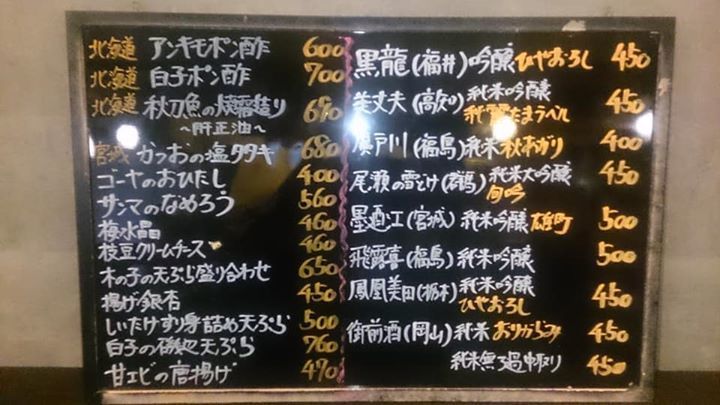 北海道 アンキモポン酢 600
北海道 白子ポン酢 700
北海道 秋刀魚の焼霜造り 690
～肝正油～
宮城 かつおの塩タタキ 680
ゴーヤのおひたし 400
サンマのなめろう 560
梅水晶 460
枝豆クリームチーズ 460
木の子の天ぷら盛り合わせ 650
揚げ銀杏 450
しいたけすり身詰め天ぷら 500
白子の磯辺天ぷら 760
甘エビの唐揚げ 470
黒龍(福井)吟醸 ひやおろし 450
美丈夫(高知)純米吟醸 450
純麗たまラベル
廣戸川(福島)純米 秋あがり 400
尾瀬の雪どけ(群馬)純米大吟醸 450
旬吟
墨廼江(宮城)純米吟醸 雄町 500
飛露喜(福島)純米吟醸 500
鳳凰美田(栃木)純米吟醸 450
ひやおろし
御前酒(岡山)純米 おりがらみ 450
純米無ろ過中取り 450